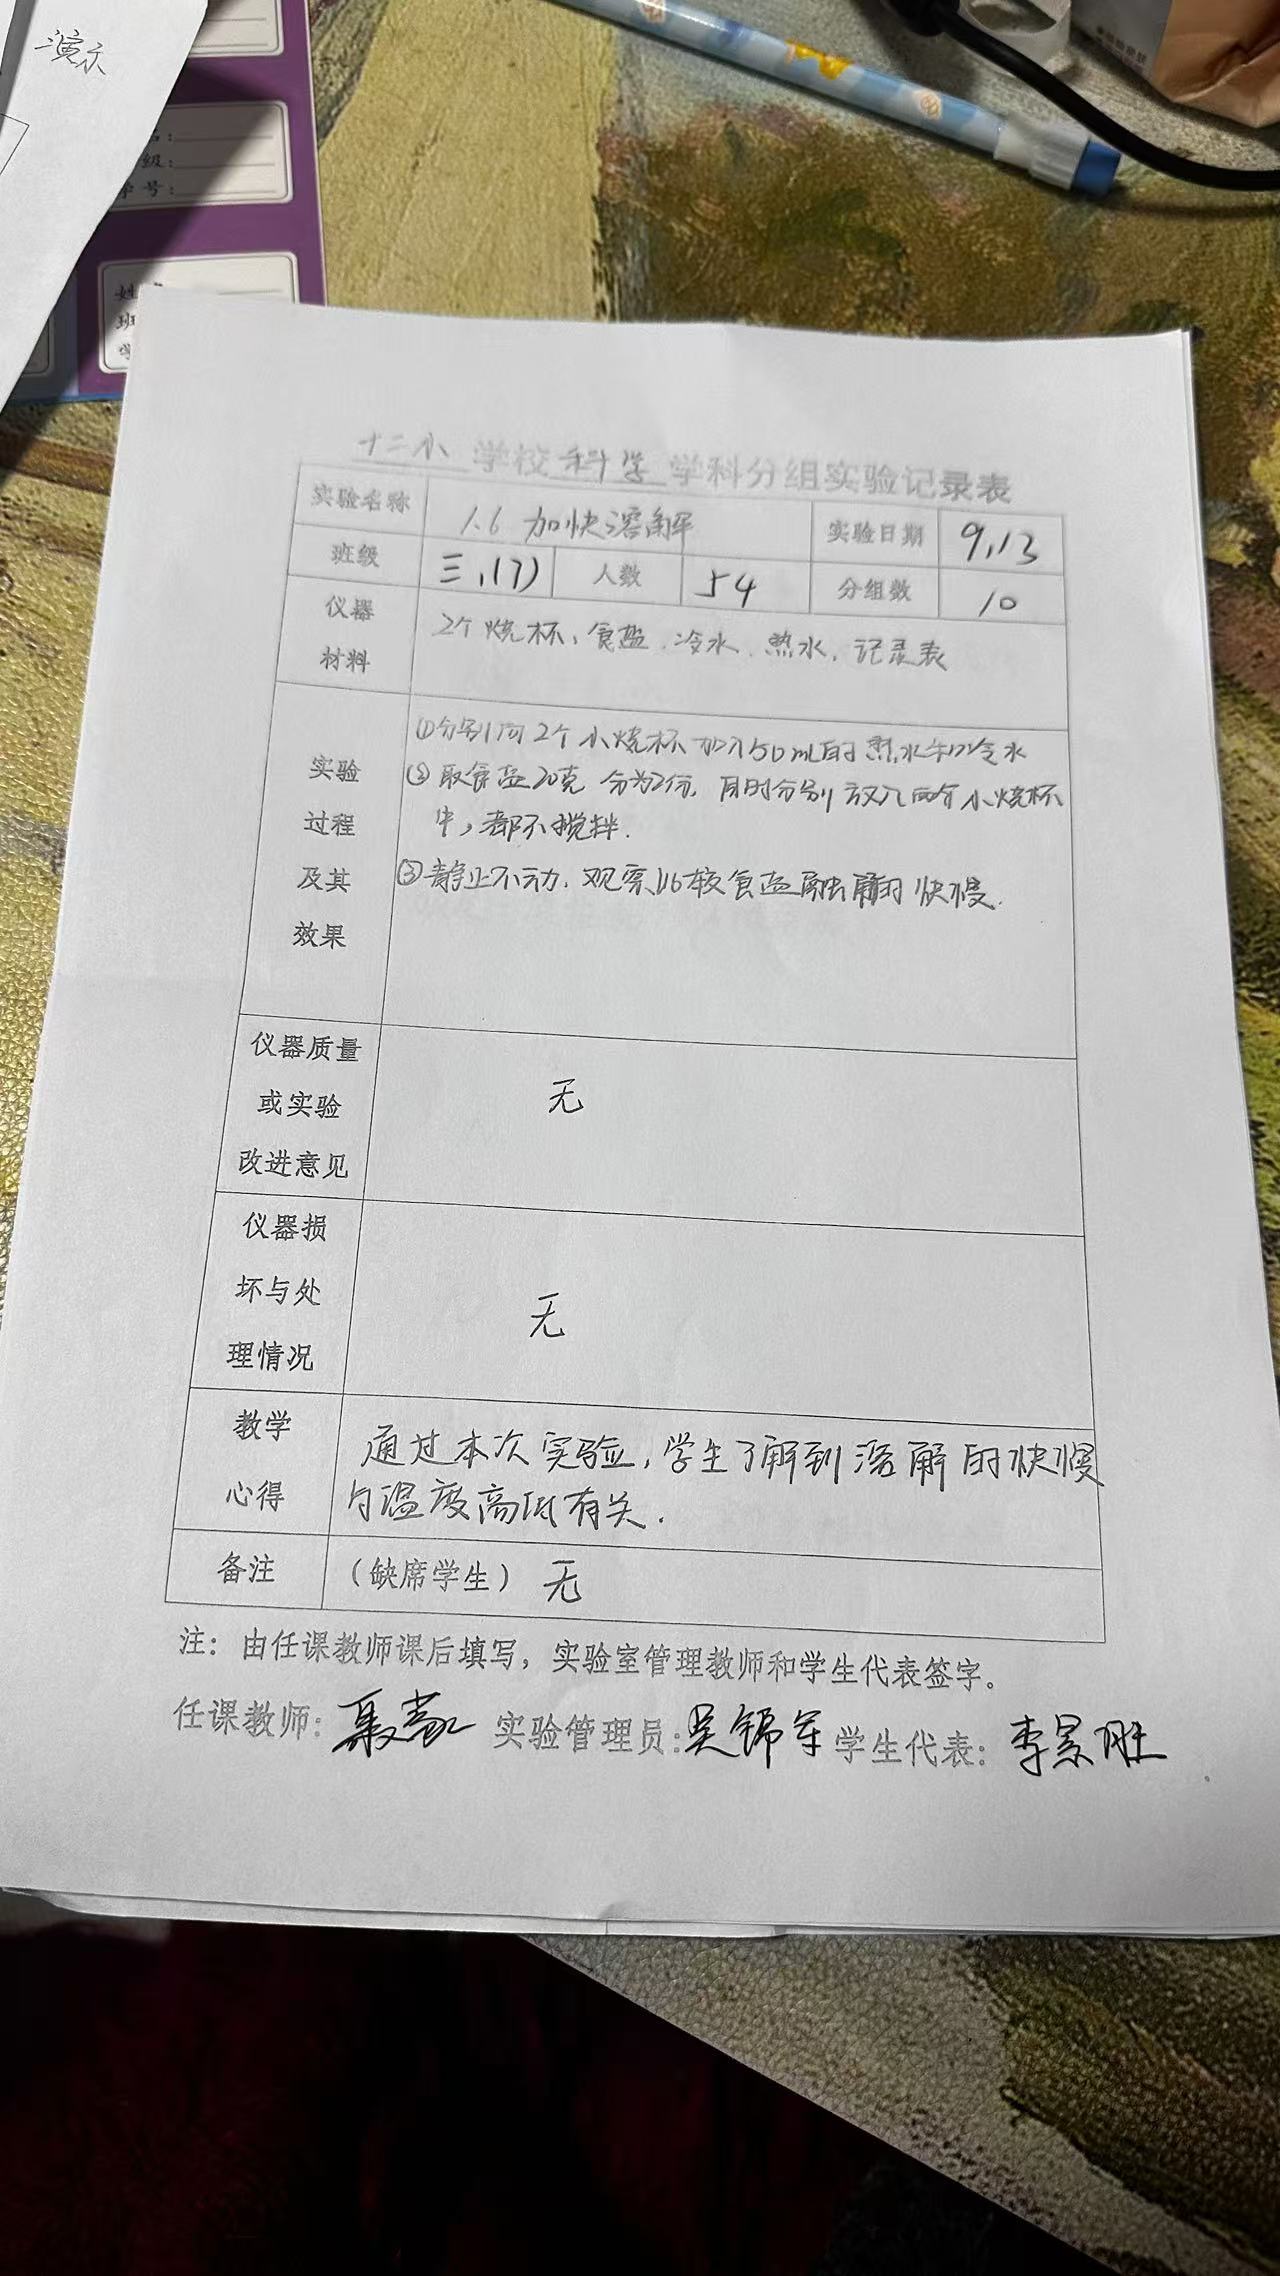 演示
级：
学号：
姓
班
学
十二小 学校 科学 学科分组实验记录表
实验名称 1.6 加快溶解 实验日期 9.13
班级 三.(7) 人数 54 分组数 10
仪器材料 2个烧杯、食盐、冷水、热水、记录表
实验过程及其效果
①分别向2个小烧杯加入50mL的热水和冷水
②取食盐20克 分为2份，同时分别放入两个小烧杯
中，都不搅拌.
③静止不动，观察比较食盐融解的快慢.
仪器质量或实验改进意见 无
仪器损坏与处理情况 无
教学心得
通过本次实验，学生了解到溶解的快慢
与温度高低有关.
备注 （缺席学生） 无
注：由任课教师课后填写，实验室管理教师和学生代表签字。
任课教师: 实验管理员:吴锦军 学生代表: 李景胜